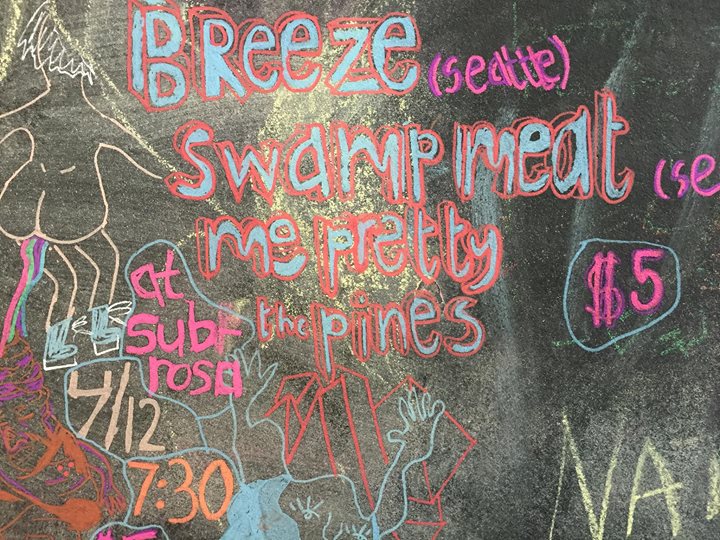 Breeze (seattle)
swamp meat (se
me pretty
the pines
$5
at
sub-
rosa
7/12
7:30
NA